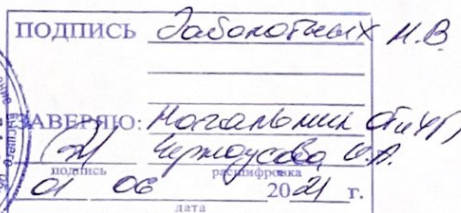 ПОДПИСЬ Заболотных Н.В.
ЗАВЕРЯЮ: Начальник ОПиЧП
Черноусова
подпись расшифровка
01 06 2021 г.
дата